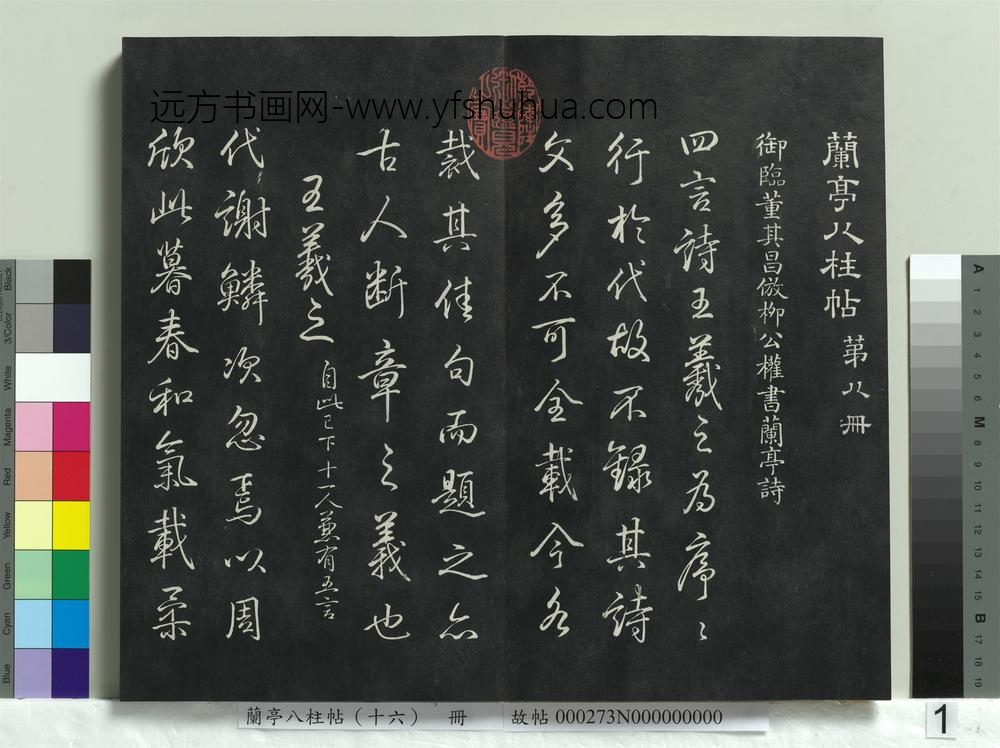 蘭亭八柱帖 第八冊
御臨董其昌倣柳公權書蘭亭詩
四言詩王羲之為序〻
行於代故不錄其詩
文多不可全載今各
裁其佳句而題之亦
古人断章之義也
王羲之 自此已下十一人兼有五言
代謝鱗次忽焉以周
欣此暮春和氣載柔
远方书画网-www.yfshuhua.com
蘭亭八柱帖（十六） 冊 故帖 000273N000000000
1
Black
3/Color
White
Magenta
Red
Yellow
Green
Cyan
Blue
A 1 2 3 4 5 6 M 8 9 10 11 12 13 14 15 B 17 18 19